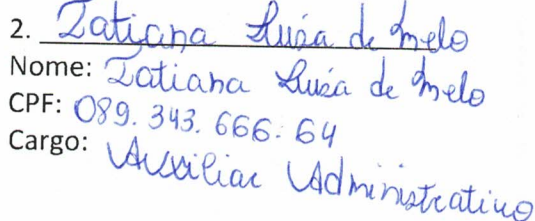 2. Tatiana Luisa de Melo
Nome: Tatiana Luisa de Melo
CPF: 089.343.666-64
Cargo: Auxiliar Administrativo